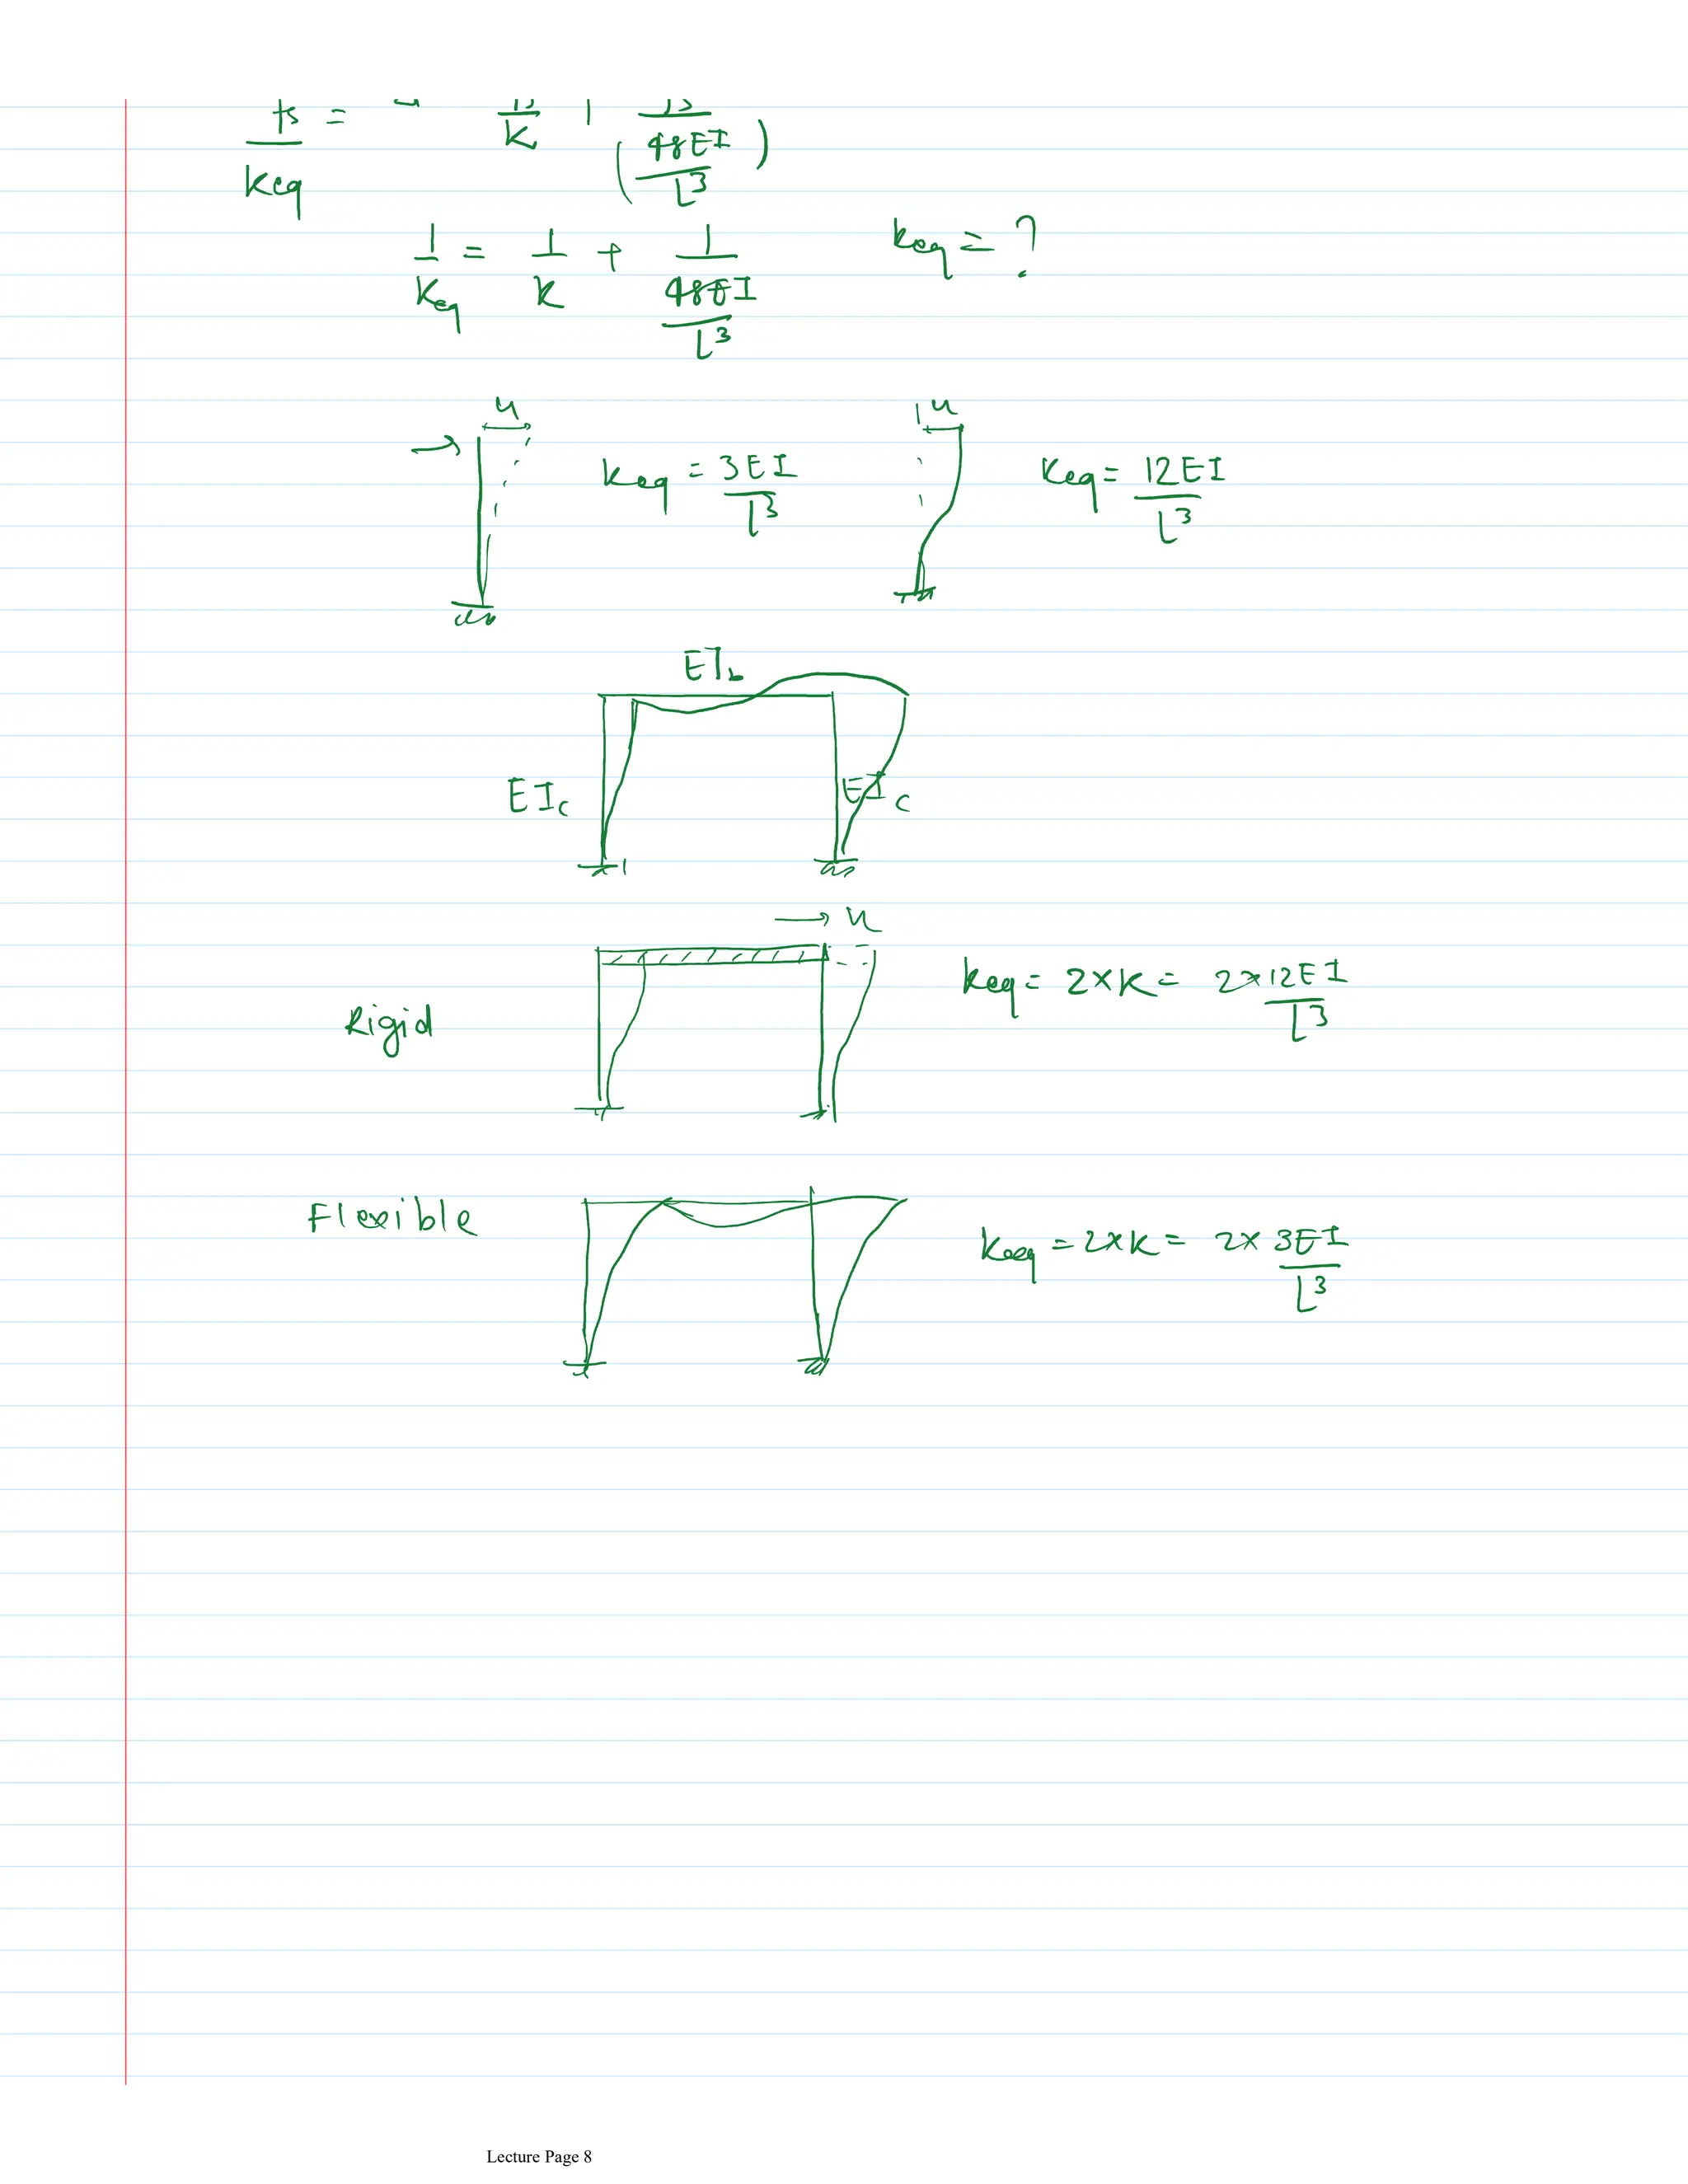 fs/Keq = /K + /(48EI/L³)
1/Keq = 1/K + 1/(48EI/L³) keq = ?
u u
keq = 3EI/L³ Keq = 12EI/L³
EIb
EIc EIc
→ u
Rigid keq = 2×K = 2×12EI/L³
Flexible keq = 2×K = 2× 3EI/L³
Lecture Page 8